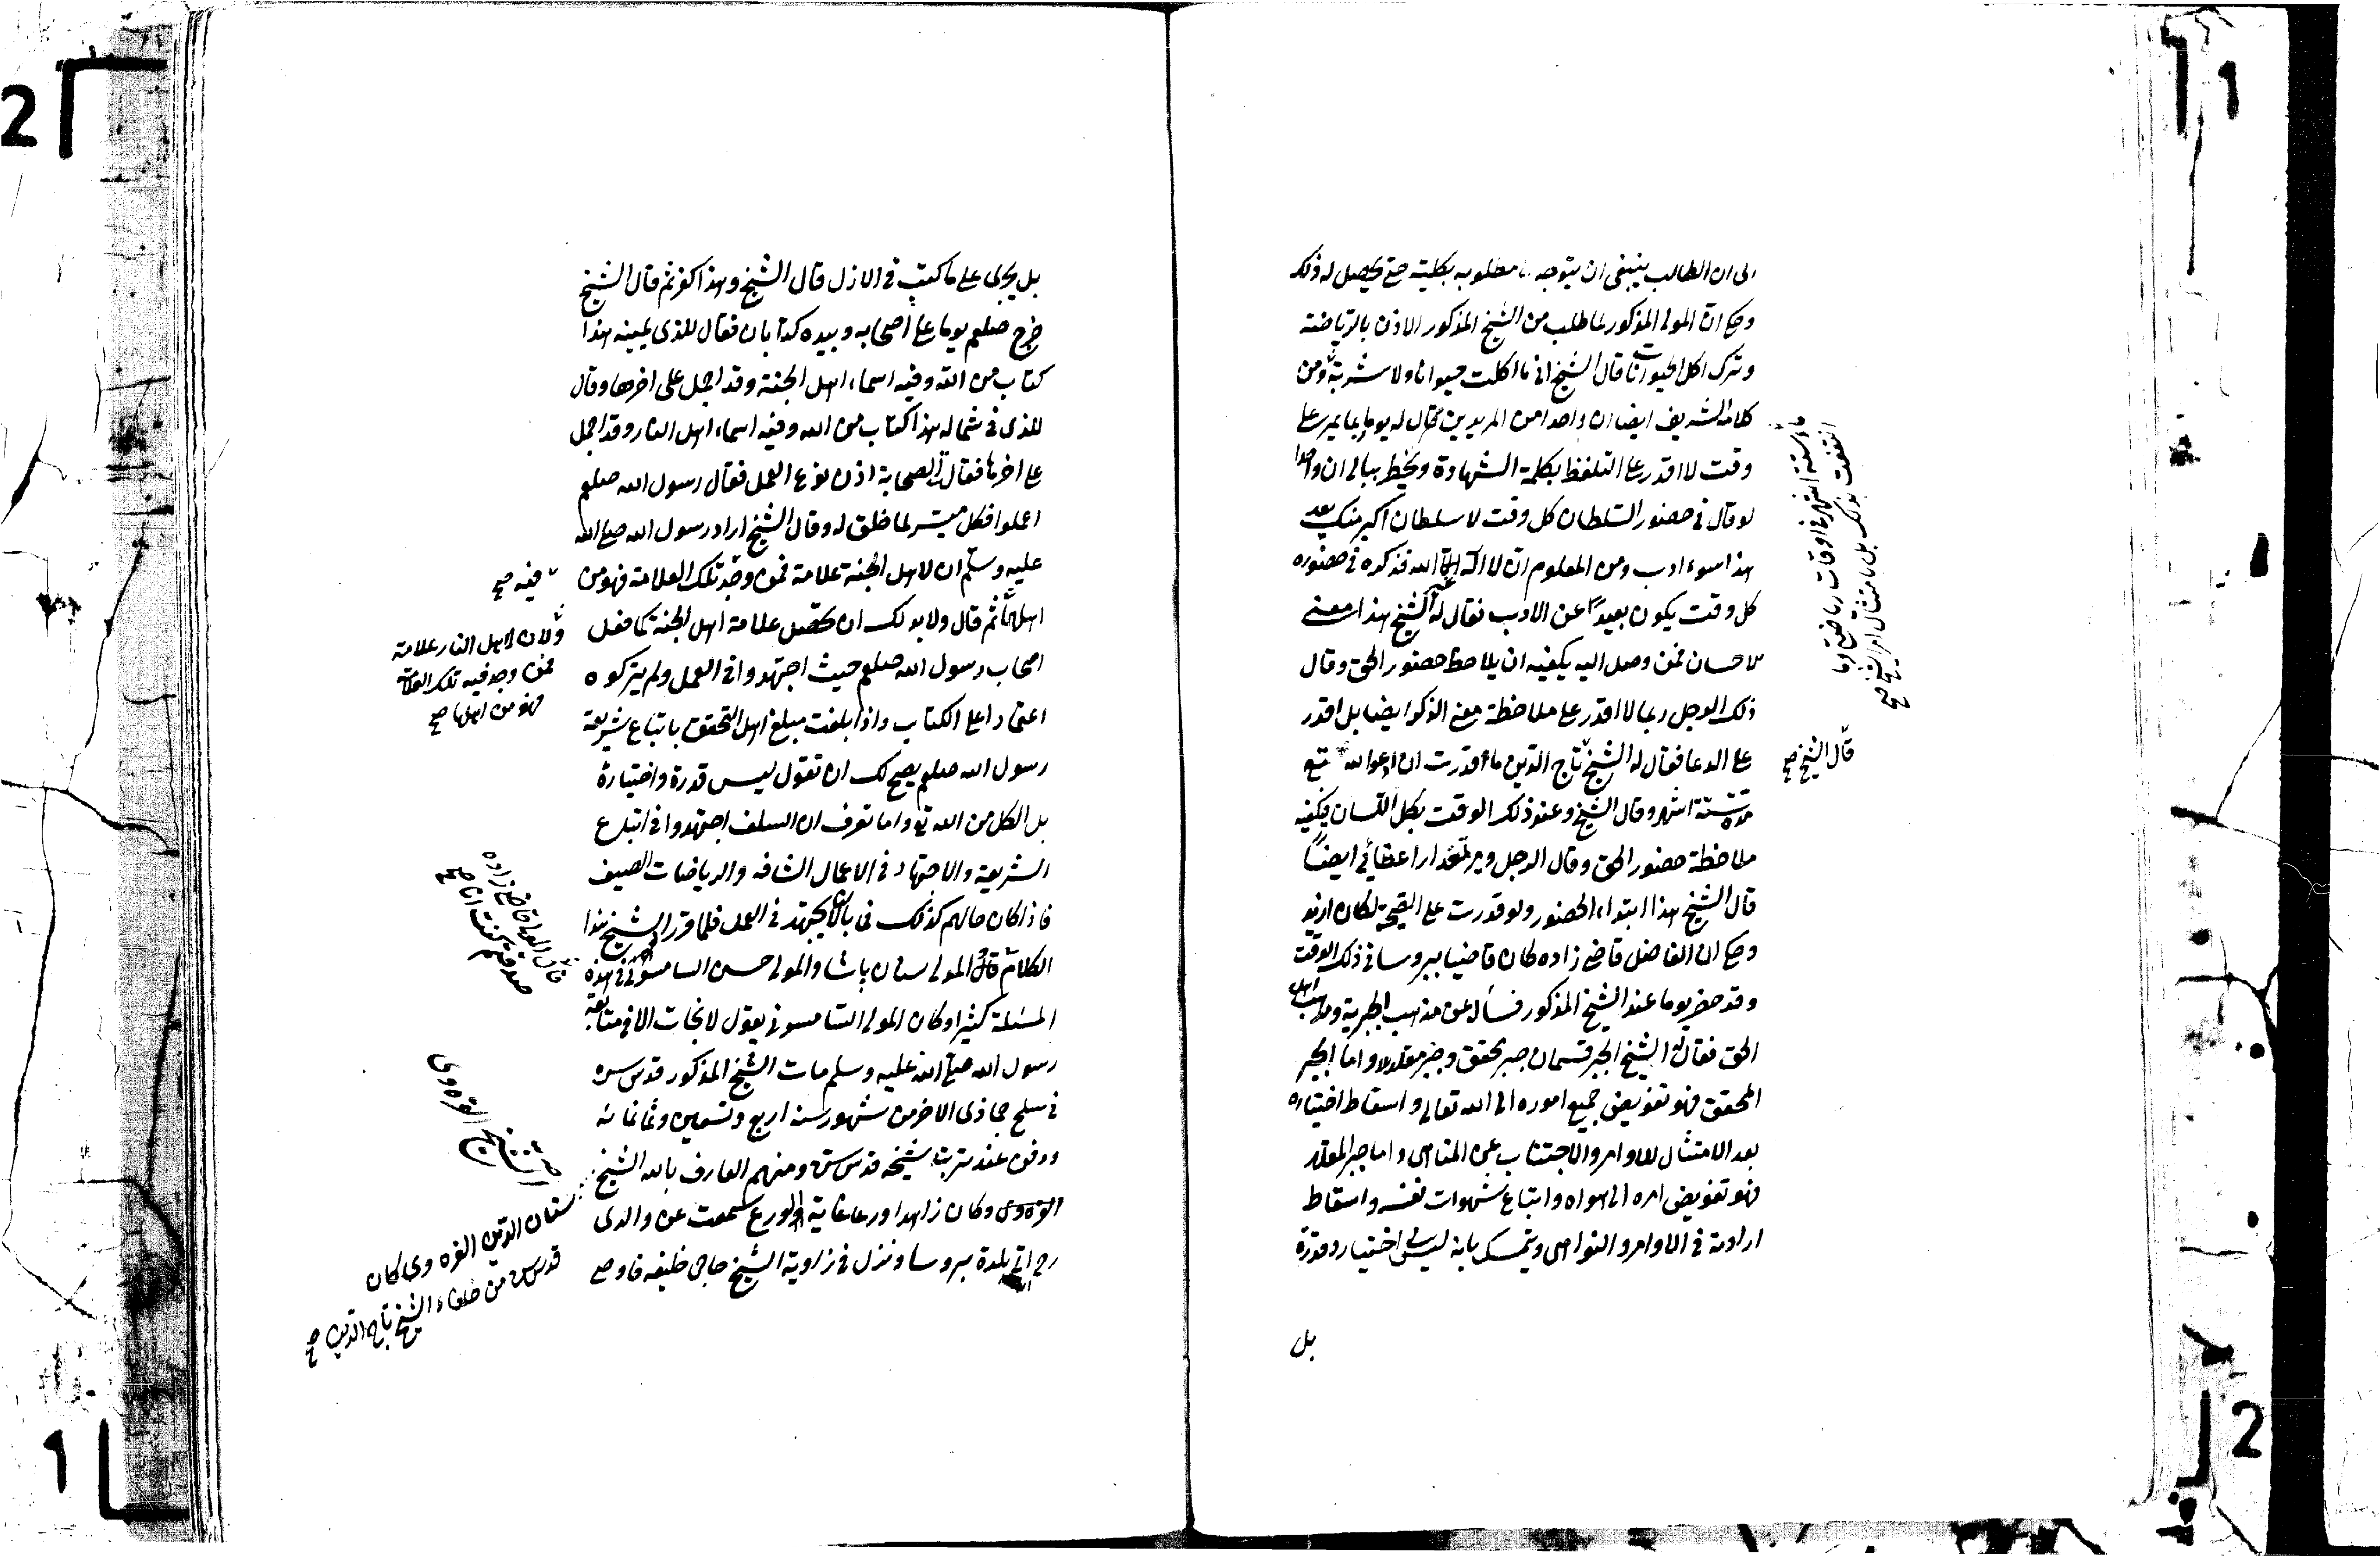 الى ان الطالب ينبغى ان يتوجه الى مطلوبه بكليته حتى يحصل له ذلك
وحكى ان المولى المذكور لما طلب من الشيخ المذكور الاذن بالرياضة
وترك اكل الحيوانات قال الشيخ انى ما اكلت حيوانا ولا شربته ومن
كلامه الشريف ايضا ان واحدا من المريدين قال له يوما ربما يمر على
وقت لا اقدر على التلفظ بكلمة الشهادة ويخطر ببالى ان واحدا
لو قال فى حضور السلطان كل وقت لا سلطان اكبر منك يعد
هذا سوء ادب ومن المعلوم ان لا اله الا الله فذكره فى حضوره
كل وقت يكون بعيدا عن الادب فقال له الشيخ هذا معنى
الاحسان فمن وصل اليه يكفيه ان يلاحظ حضور الحق وقال
ذلك الرجل ربما لا اقدر على ملاحظة معنى الذكر ايضا بل اقدر
على الدعا فقال له الشيخ تاج الدين ما اقدرت ان ادعو الله تع
مدة ستة اشهر وقال الشيخ وعند ذلك الوقت يكل اللسان فيكفيه
ملاحظة حضور الحق وقال الرجل ويرتعد اعضائى ايضا
قال الشيخ هذا ابتداء الحضور ولو قدرت على الصيحة لكان ازيد
وحكى ان الفاضل قاضى زاده كان قاضيا ببروسا فى ذلك الوقت
وقد حضر يوما عند الشيخ المذكور فسأله عن مذهب الجبرية ومذهب اهل
الحق فقال له الشيخ الجبر قسمان جبر محقق وجبر مقلد واما الجبر
المحقق فهو تفويض جميع اموره الى الله تعالى واسقاط اختياره
بعد الامتثال للاوامر والاجتناب عن المناهى واما جبر المقلد
فهو تفويض امره الى هواه واتباع شهوات نفسه واسقاط
ارادته فى الاوامر والنواهى ويتمسك بانه ليس لى اختيار وقدرة
بل
مدة ستة اشهر فى اوقات رياضتى وما
التفت بذلك بل بامتثال امر الشيخ صح
قال الشيخ صح
بل يجرى على ما كتب فى الازل قال الشيخ وهذا كفر ثم قال الشيخ
خرج صلعم يوما على اصحابه وبيده كتابان فقال للذى بيمينه هذا
كتاب من الله وفيه اسماء اهل الجنة وقد اجمل على اخرها وقال
للذى فى شماله هذا كتاب من الله وفيه اسماء اهل النار وقد اجمل
على اخرها فقالت الصحابة اذن ندع العمل فقال رسول الله صلعم
اعملوا فكل ميسر لما خلق له وقال الشيخ اراد رسول الله صلى الله
عليه وسلم ان لاهل الجنة علامة فمن وجد تلك العلامة فهو من
اهلها ثم قال ولا بد لك ان تحصل علامة اهل الجنة كما فعل
اصحاب رسول الله صلعم حيث اجتهدوا فى العمل ولم يتركوه
اعتمادا على الكتاب واذا بلغت مبلغ اهل التحقق باتباع شريعة
رسول الله صلعم يصح لك ان تقول ليس قدرة واختيارة
بل الكل من الله تع واما تعرف ان السلف اجتهدوا فى اتباع
الشريعة والاجتهاد فى الاعمال الشاقه والرياضات الصيف
فاذا كان حالهم كذلك فما بالك لا تجتهد فى العمل فلما قرر الشيخ هذا
الكلام قال المولى سنان باشا والمولى حسن السامسونى فى هذه
المسئلة كثيرا وكان المولى السامسونى يقول لا نجات الا فى متابعة
رسول الله صلى الله عليه وسلم مات الشيخ المذكور قدس سره
فى سلخ جماذى الاخر من شهور سنه اربع وتسعين وثمانمائه
ودفن عند تربة شيخه قدس سره ومنهم العارف بالله الشيخ
القره وى وكان زاهدا ورعا غاية الورع سمعت عن والدى
رح اتى بلدة بروسا ونزل فى زاوية الشيخ حاجى خليفه فاوصى
فيه صح
ولان لاهل النار علامة
فمن وجد فيه تلك العلامة
فهو من اهلها صح
قال المولى قاضى زاده
صدقتم كنت انا صح
الشيخ القره وى
سنان الدين القره وى كان
قدس سره من خلفاء الشيخ تاج الدين صح
2
1
1
2